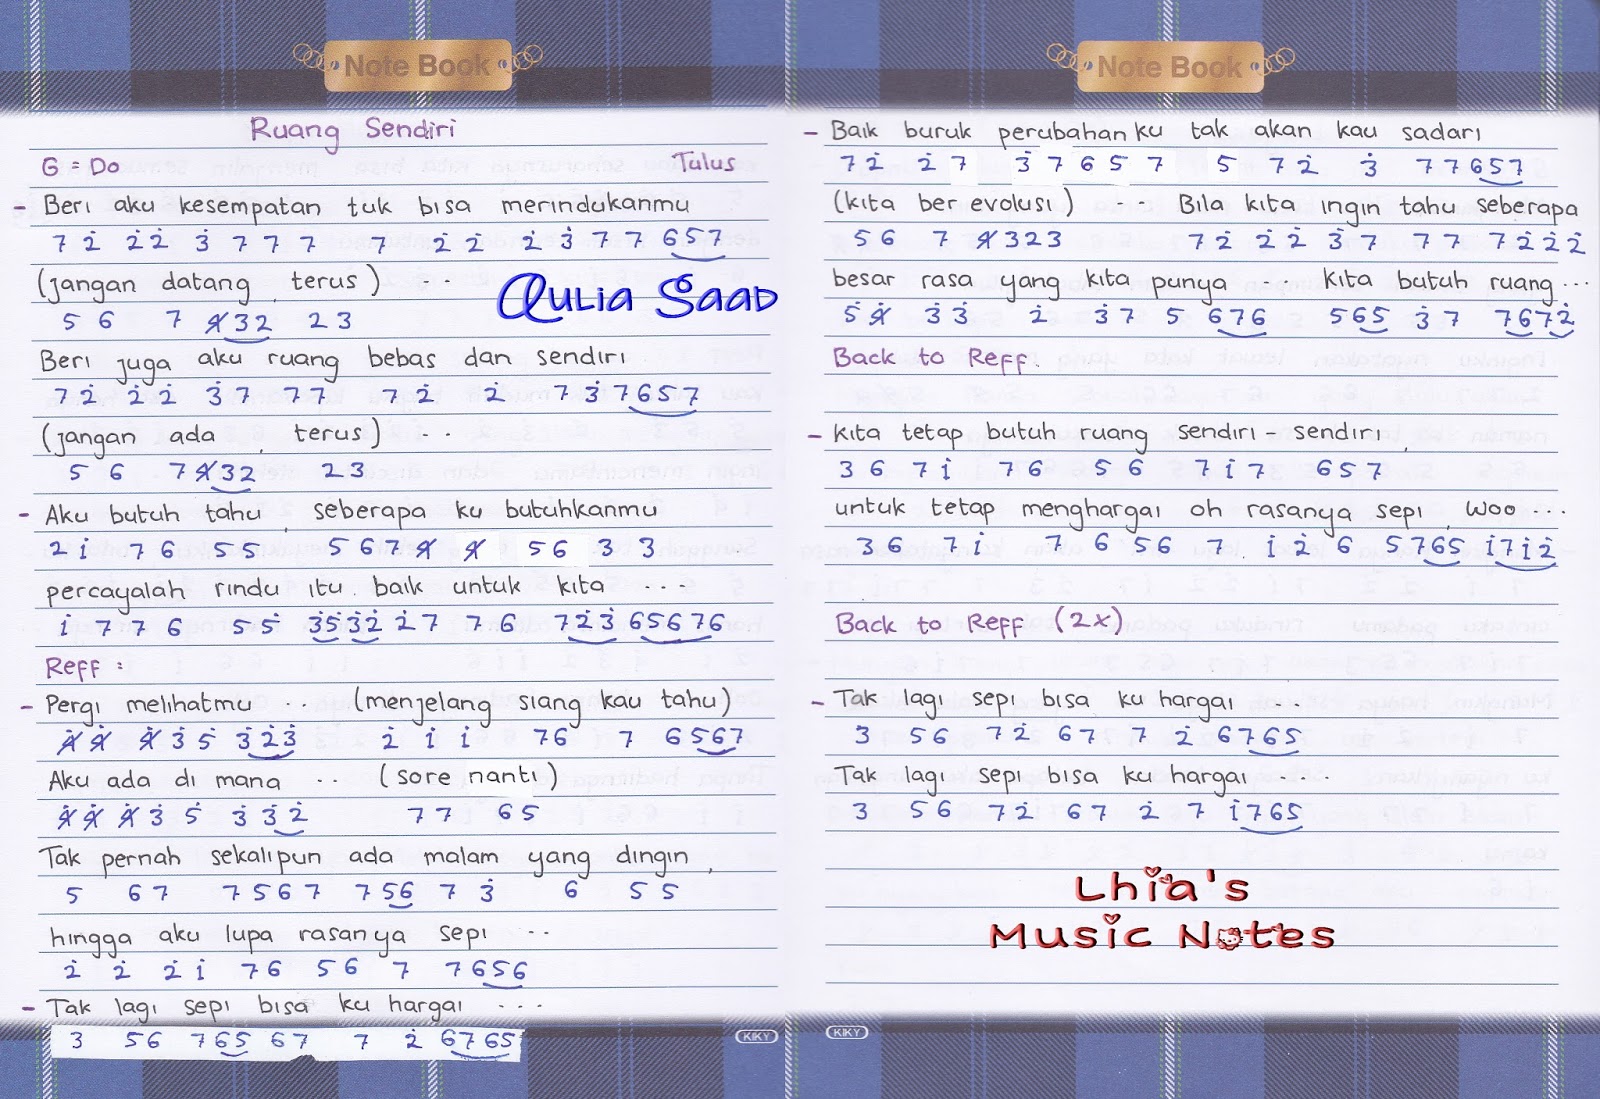 Note Book
Ruang Sendiri
G = Do
Tulus
- Beri aku kesempatan tuk bisa merindukanmu
7 2̇ 2̇2̇ 3̇ 7 7 7 7 2̇ 2̇ 2̇ 3̇ 7 7 657
(jangan datang, terus) ...
5 6 7 4̸32 23
Qulia Saab
Beri juga aku ruang bebas dan sendiri
72̇ 2̇2̇ 3̇7 77 72̇ 2̇ 73̇7657
(jangan ada, terus) ...
5 6 74̸32 23
- Aku butuh tahu, seberapa ku butuhkanmu
2̇ 1̇ 7 6 5 5 5 6 4̸ 4̸ 56 3 3
percayalah rindu itu baik untuk kita ....
1̇ 7 7 6 5̇5̇ 3̇5̇3̇2̇ 2̇7 76 72̇3̇ 65676
Reff :
- Pergi melihatmu ... (menjelang siang kau tahu)
4̸̇ 4̸̇ 4̸̇ 3̇ 5̇ 3̇2̇3̇ 2̇ 1̇ 1̇ 76 7 6567
Aku ada di mana ... (sore nanti)
4̸̇ 4̸̇ 4̸̇ 3̇ 5̇ 3̇ 3̇2̇ 77 65
Tak pernah sekalipun ada malam yang dingin,
5 67 7567 756 73̇ 6 55
hingga aku lupa rasanya sepi ...
2̇ 2̇ 2̇ 1̇ 76 56 7 7656
- Tak lagi sepi bisa ku hargai ....
3 56 765 67 7 2̇ 6765
KIKY
Note Book
- Baik buruk perubahanku tak akan kau sadari
72̇ 2̇7 3̇7657 5 72̇ 3̇ 77657
(kita ber evolusi) ... Bila kita ingin tahu seberapa
56 7 4̸323 72̇ 2̇2̇ 3̇7 77 72̇2̇2̇
besar rasa yang kita punya kita butuh ruang ...
5̇4̸̇ 3̇3̇ 2̇ 3̇7 5 676 565 3̇7 7672̇
Back to Reff.
- kita tetap butuh ruang sendiri - sendiri,
36 71̇ 76 56 71̇7 657
untuk tetap menghargai oh rasanya sepi, woo ...
36 71̇ 7 6 56 7 1̇ 2̇ 6 5765 1̇71̇2̇
Back to Reff (2x)
- Tak lagi sepi bisa ku hargai ....
3 56 72̇ 67 7 2̇ 6765
Tak lagi sepi bisa ku hargai .....
3 56 72̇ 67 2̇ 7 1̇765
Lhia's
Music Notes
KIKY